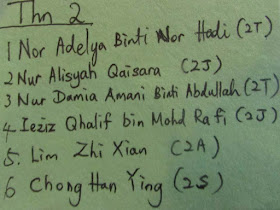 Thn 2
1 Nor Adelya Binti Nor Hadi (2T)
2 Nur Alisyah Qaisara (2J)
3 Nur Damia Amani Binti Abdullah (2T)
4. Ieziz Qhalif bin Mohd Rafi (2J)
5. Lim Zhi Xian (2A)
6 Chong Han Ying (2S)